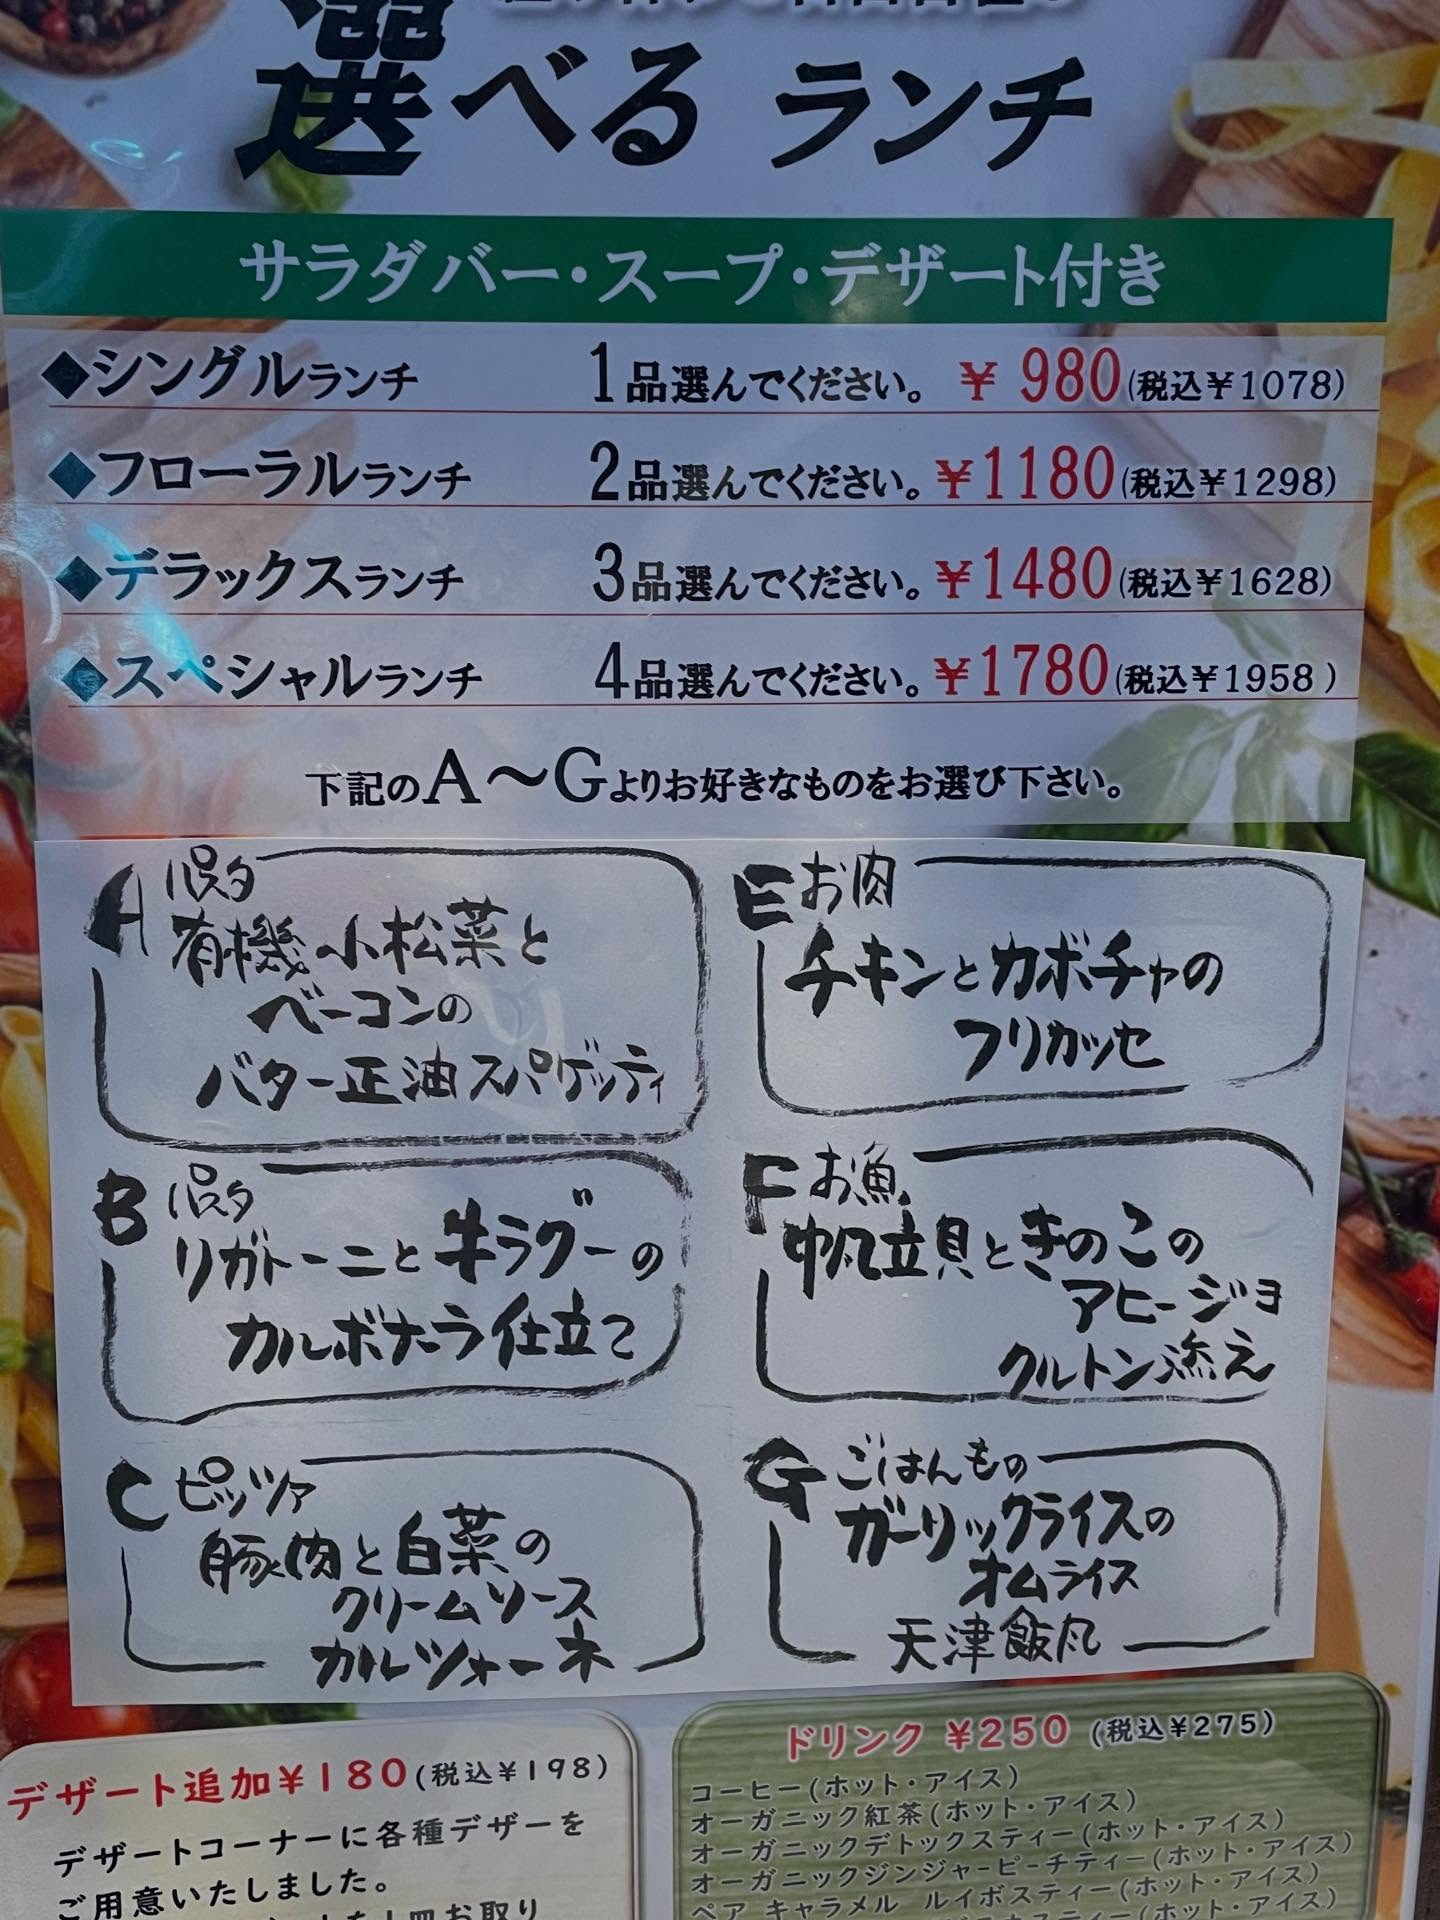 選べるランチ
サラダバー・スープ・デザート付き
◆シングルランチ 1品選んでください。 ¥ 980(税込¥1078)
◆フローラルランチ 2品選んでください。 ¥1180(税込¥1298)
◆デラックスランチ 3品選んでください。 ¥1480(税込¥1628)
◆スペシャルランチ 4品選んでください。 ¥1780(税込¥1958)
下記のA〜Gよりお好きなものをお選び下さい。
A パスタ
有機小松菜と
ベーコンの
バター正油スパゲッティ
B パスタ
リガトーニと牛ラグーの
カルボナーラ仕立て
C ピッツァ
豚肉と白菜の
クリームソース
カルツォーネ
E お肉
チキンとカボチャの
フリカッセ
F お魚
帆立貝ときのこの
アヒージョ
クルトン添え
G ごはんもの
ガーリックライスの
オムライス
天津飯風
デザート追加¥180(税込¥198)
デザートコーナーに各種デザーを
ご用意いたしました。
皿お取り
ドリンク ¥250 (税込¥275)
コーヒー(ホット・アイス)
オーガニック紅茶(ホット・アイス)
オーガニックデトックスティー(ホット・アイス)
オーガニックジンジャーピーチティー(ホット・アイス)
ペア キャラメル ルイボスティー(ホット・アイス)